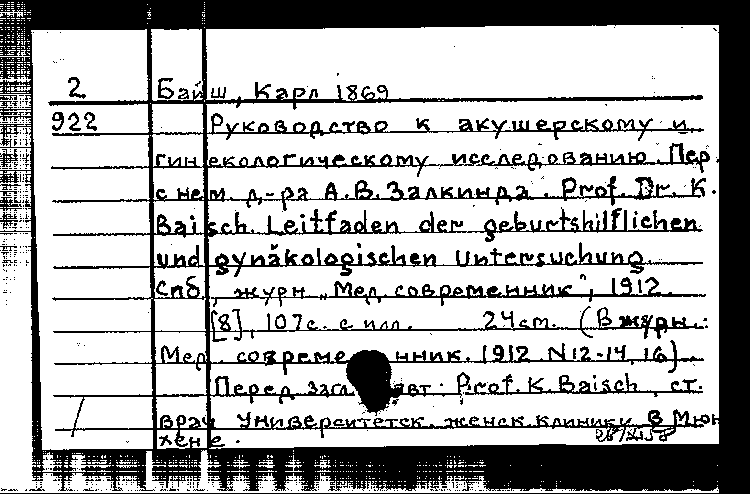 2 Байш, Карл 1869
922 Руководство к акушерскому и
гинекологическому исследованию. Пер.
с нем. д-ра А.В. Залкинда. Prof. Dr. K.
Baisch. Leitfaden der geburtshilflichen
und gynäkologischen Untersuchung.
Спб., журн. „Мед. современник", 1912.
[8], 107 с. с илл. 24 см. (В журн.:
Мед. современник. 1912. N 12-14, 16).
Перед загл. авт.: Prof. K. Baisch, ст.
врач Университетск. женск. клиники в Мюн
хене.